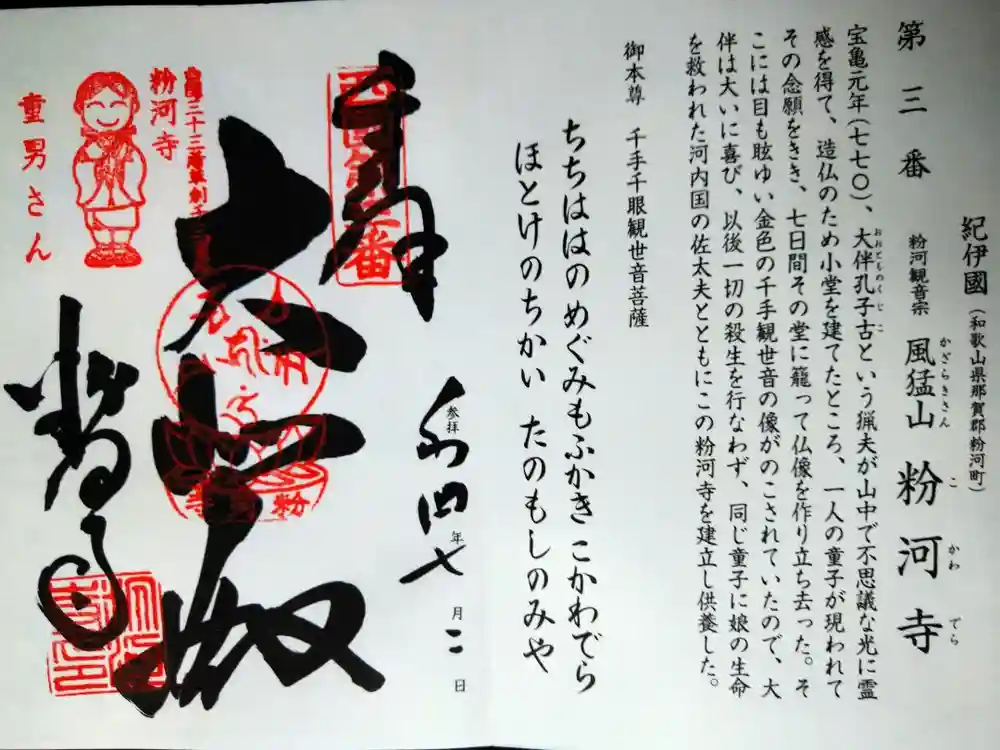 紀伊國(和歌山県那賀郡粉河町)
第三番 粉河観音宗 風猛山 粉河寺
かざらきさん こ かわ でら
宝亀元年(七七〇)、大伴孔子古という猟夫が山中で不思議な光に霊
おおとものくじこ
感を得て、造仏のため小堂を建てたところ、一人の童子が現われて
その念願をきき、七日間その堂に籠って仏像を作り立ち去った。そ
こには目も眩ゆい金色の千手観世音の像がのこされていたので、大
伴は大いに喜び、以後一切の殺生を行なわず、同じ童子に娘の生命
を救われた河内国の佐太夫とともにこの粉河寺を建立し供養した。
御本尊 千手千眼観世音菩薩
ちちははのめぐみもふかきこかわでら
ほとけのちかい たのもしのみや
参拝 令和四年七月二日
奉拝
西国第三番
大悲殿
粉河寺
粉河寺
童男さん